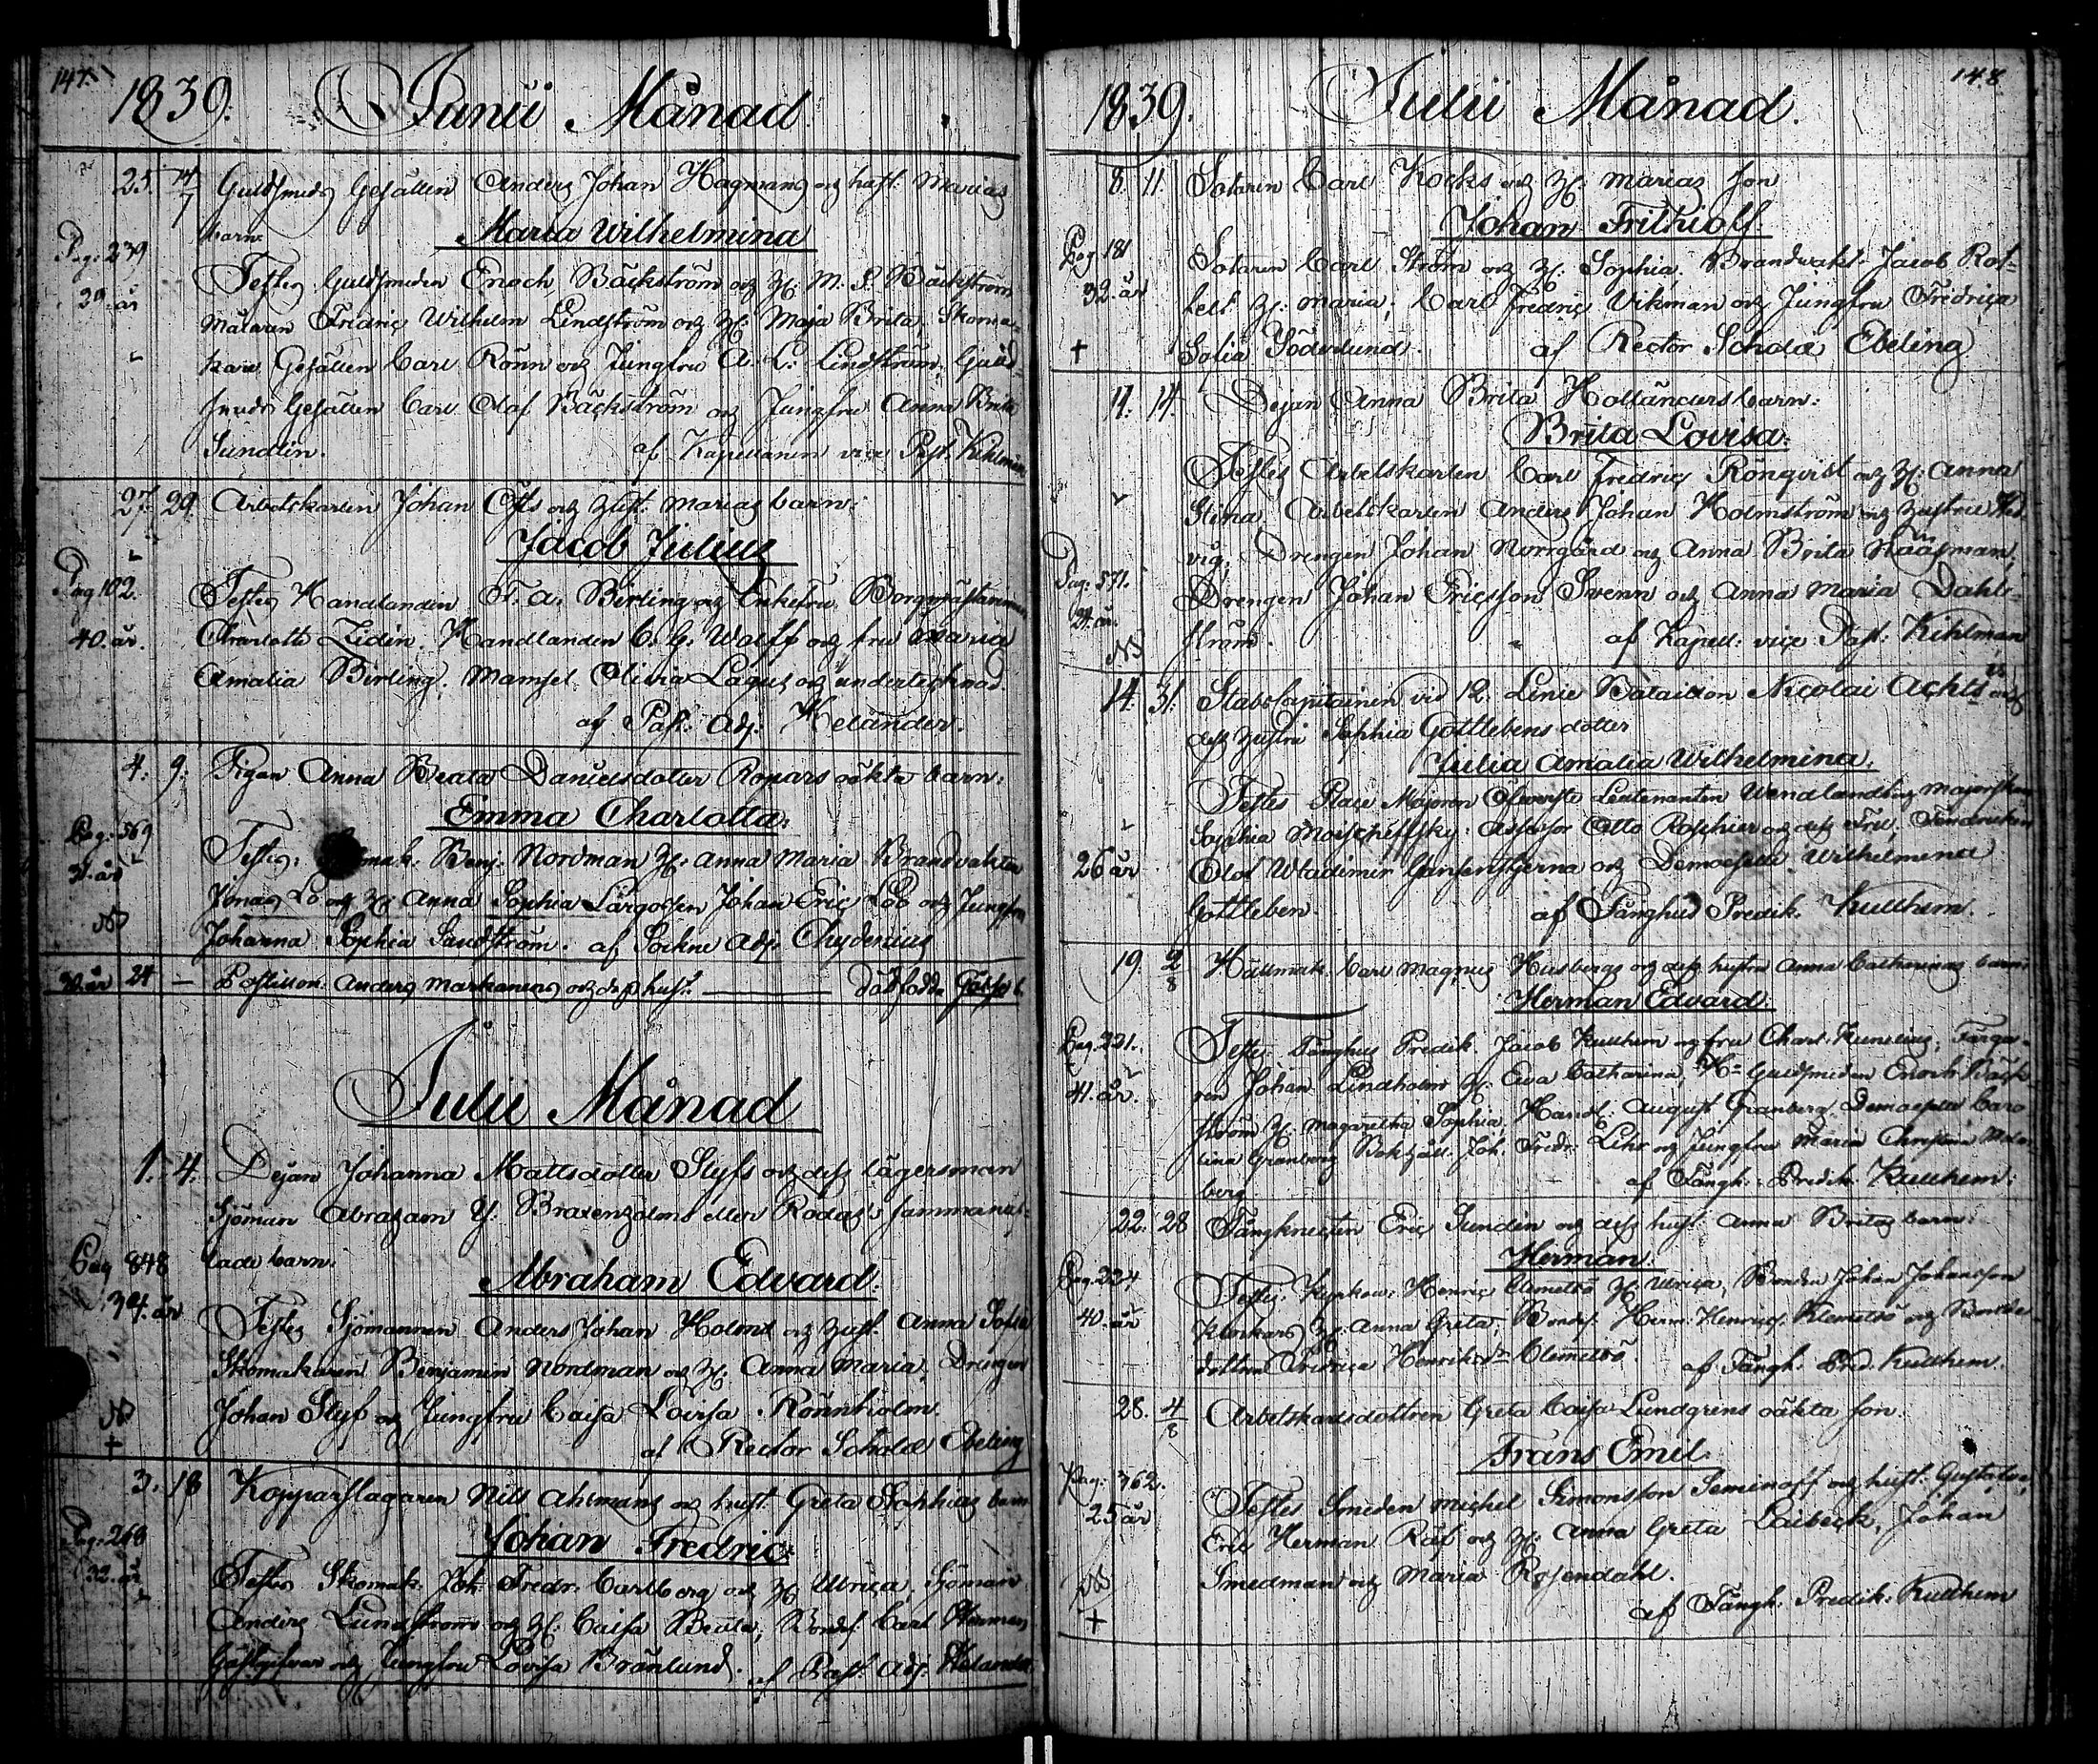 147.
1839. Junii Månad.
25. 14/7 Guldsmeds Gesällen Anders Johan Hagmans och hust. Marias
barn
Maria Wilhelmina
Pag: 239
29. år
Testes Guldsmeden Enoch Bäckström och H: M. S. Bäckström
Målaren Fredric Wilhelm Lindström och H: Maja Brita, Skoma-
kare Gesällen Carl Rönn och Jungfru A. C. Lindström, Guld-
smeds Gesällen Carl Olof Bäckström och Jungfru Anna Brita
Sundlin. af Kapellanen vice Past. Kihlman
27. 29. Arbetskarlen Johan Öfts och hust. Marias barn:
Jacob Julius
Pag 102.
40. år.
Testes Handlanden F. A. Berling och Enkefru Borgmästarinnan
Charlotte Lidén. Handlanden C. G. Wolff och fru Maria
Amalia Berling. Mamsel Olivia Lagus och undertecknad
af Past. Adj. Helander.
4. 9. Pigan Anna Beata Danielsdotter Ropars oäkta barn:
Emma Charlotta:
Pag: 569
31. år
Testes: mak. Benj: Nordman H: Anna Maria Brandvakten
Jonas Lö och H: Anna Sophia Johan Eric Löö och Jungfru
Johanna Sophia Sandström. af Sockne Adj. Chydenius
NB
30 år 24 — Postillon Anders Markanens och dess hust. — dödfödda
Julii Månad
1. 4. Dejan Johanna Mattsdotter Slyfs och dess lägersman
Sjöman Abraham Y: Braxenholms eller Rodas sammanaf-
lade barn.
Abraham Edvard:
Pag 848
34. år
Testes Sjömannen Anders Johan Holms och hust. Anna Sofia
Skomakaren Benjamin Nordman och H: Anna Maria, Drengen
Johan Slyf och Jungfru Caisa Lovisa Rönnholm.
af Rector Scholæ Ebeling
NB
+
3. 18 Kopparslagaren Nils Ahlmans och hust. Greta Sophias barn
Johan Fredric:
Pag: 268
32. år
Testes Skomak. Joh. Fredr. Carlberg och H: Ulrica, Sjöman
Anders Lundström och H: Caisa Beata, Bonds. Carl Herman
och Jungfru Lovisa Brånlund. af Past. Adj. Helander
148
1839. Julii Månad.
8. 11. Sotaren Carl Kocks och H: Marias son
Johan Frithiolf.
Pag 181
32. år
+
Sotaren Carl Ström och H: Sophia, Brandvakt. Jacob Rot-
felt H: Maria; Carl Fredric Vikman och Jungfru Fredrica
Sofia Söderlund. af Rector Scholæ Ebeling
11. 14. Dejan Anna Brita Holländers barn:
Brita Lovisa:
Testes Arbetskarlen Carl Fredric Rönqvist och H: Anna
Stina, Arbetskarlen Anders Johan Holmström och hustru Hed-
vig, Drengen Johan Norrgård och Anna Brita
Drengen Johan Ericsson Svenn och Anna Maria Dahl-
ström. af Kapell: vice Past. Kihlman
Pag: 571.
24. år.
NB
14. 31. Stabs Capitainen vid 12. Linie Bataillon Nicolai och
dess hustru Sophia Gottlebens dotter
Julia Amalia Wilhelmina.
Testes Place Majoren Öfverste Leutenanten Wendland och Majorskan
Sophia Assessor Otto Roschier och dess Fru. Fendricken
Olof Wladimir och Demoiselle Wilhelmina
Gottleben. af Fånghus Predik. Kullhem.
26 år
19. 2/8 Hattmak. Carl Magnus Husbergs och dess hustru Anna Catharinas barn:
Herman Edvard.
Pag. 221.
41. år.
Testes. Fånghus Predik. Jacob Kullhem och fru Charl. Kunelius, Färga-
ren Johan Lindholm H: Eva Catharina, Guldsmeden Enoch Bäck-
ström H: Magaretha Sophia, Handl: August Granberg Demoiselle Caro-
lina Granberg Bokhåll. Joh. Fredr. Lihr och Jungfru Maria Christina
berg af Fångh. Predik. Kullhem.
22. 28 Fångknecten Eric Sundin och dess hust Anna Britas barn:
Herman:
Pag. 224
40. år
Testes. Kyrkow. Henric Clemetsö H: Ulrica, Bonden Johan Johansson
Klockars H: Anna Greta, Bonds. Herm. Henrics. Klemetsö och Bonde
dottren Fredrica Henriksdr Clemetsö. af Fångh. Pred. Kullhem.
28. 4/8 Arbetskarlsdottren Greta Caisa Lundgrens oäkta son.
Frans Emil.
Pag: 362.
25 år
Testes Smeden Michel Simonsson Seminoff och hust. Gustava,
Eric Herman Räf och H: Anna Greta Laibeck, Johan
Smedman och Maria Rosendahl.
af Fångh. Predik. Kullhem
NB
+